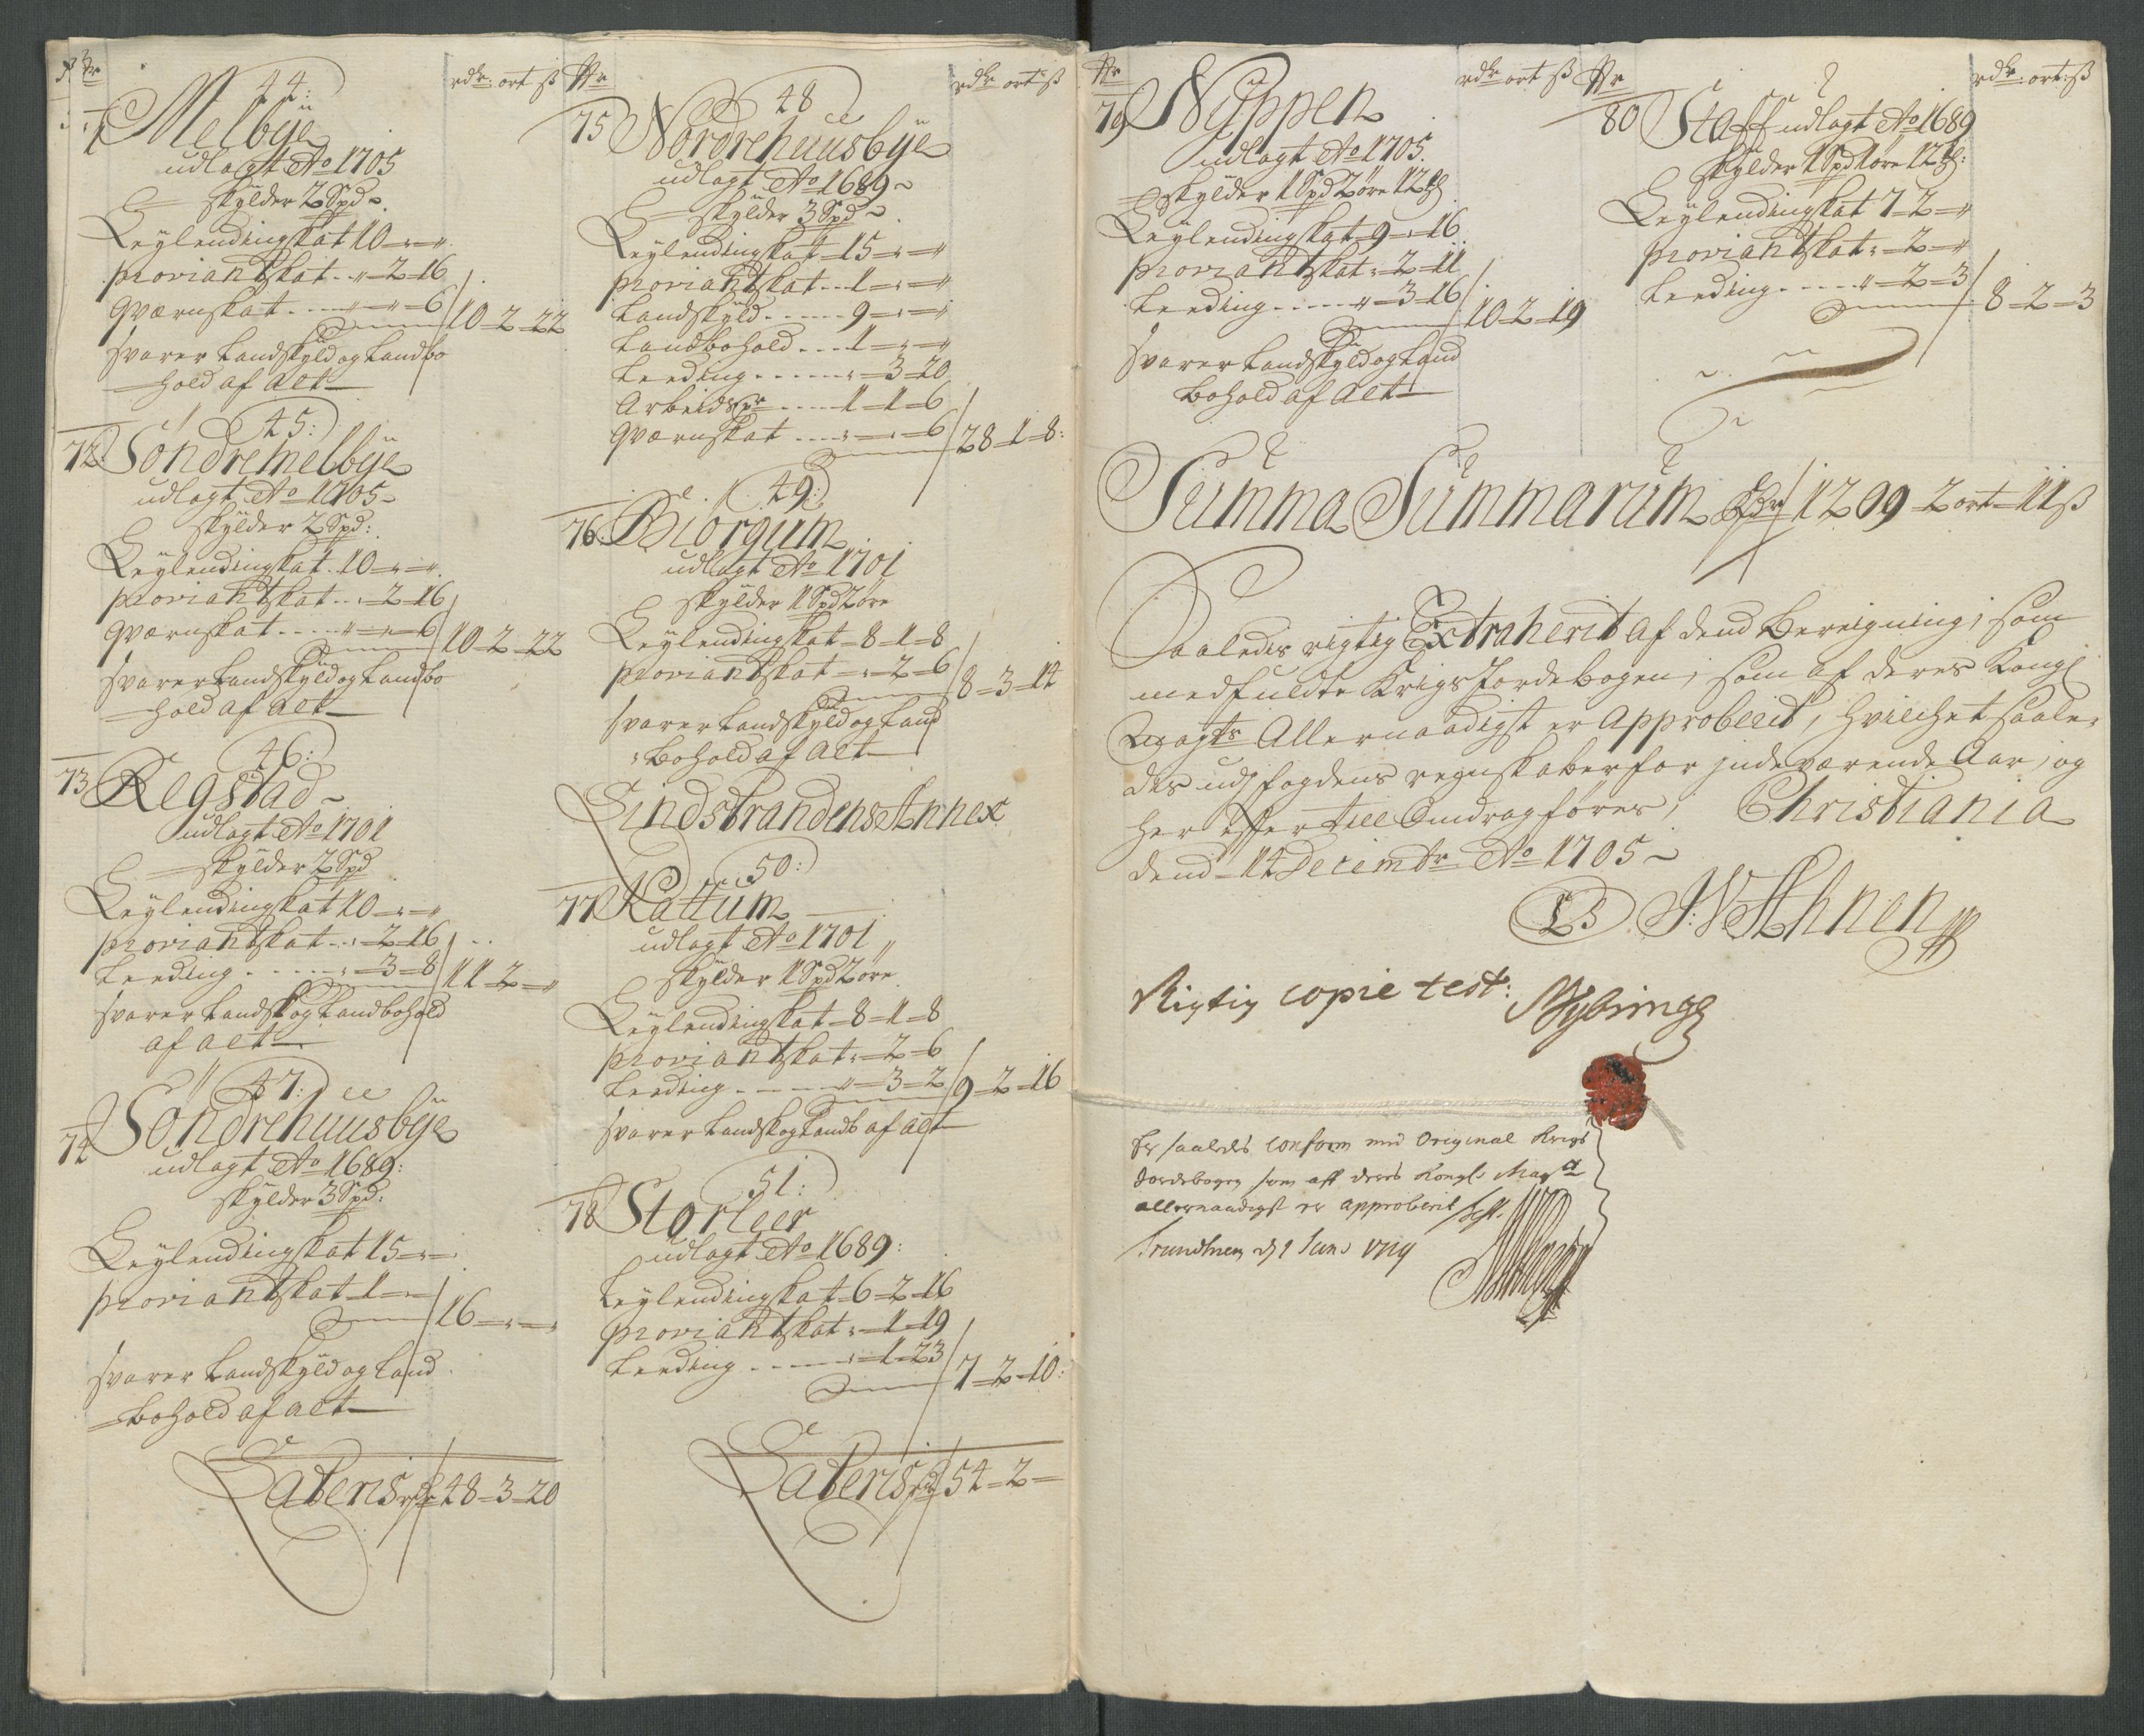 Nr
rdr: ort ß
44:
71 Melbÿe
udlagt Ao 1705
skÿlder 2 Spd
Leÿlendingskat 10 - " - "
proviantskat . . " - 2 - 16
qværnskat . . . . " - " - 6 / 10 - 2 - 22
svarer Landskÿld og Landbo
hold af alt
45:
72 Söndremelbÿe
udlagt Ao 1705
skÿlder 2 Spd:
Leÿlendingskat . 10 - " - "
proviantskat . . " - 2 - 16
qværnskat . . . . " - " - 6 / 10 - 2 - 22
svarer Landskÿld og Landbo
hold af alt
46:
73 Regstad
udlagt Ao 1701
skÿlder 2 Spd
Leÿlendingskat 10 - " - "
proviantskat . . " - 2 - 16
Leeding . . . . . " - 3 - 8 / 11 - 2 - "
svarer Landsk og Landbohold
af alt
47:
74 Söndrehuusbÿe
udlagt Ao 1689:
skÿlder 3 Spd:
Leÿlendingskat 15 - " - "
proviantskat 1 - " - " / 16 - " - "
svarer Landskÿld og Land
bohold af alt
Lateris rdr 48 - 3 - 20
Nr
rdr ort ß
48
75 Nordrehuusbÿe
udlagt Ao 1689
skÿlder 3 Spd
Leÿlendingskat 15 - " - "
proviantskat . . 1 - " - "
Landskÿld . . . . . 9 - " - "
Landbohold . . . 1 - " - "
Leeding . . . . . . " - 3 - 20
Arbeidspr . . . . . 1 - 1 - 6
qværnskat . . . . " - " - 6 / 28 - 1 - 8:
49:
76 Biörgum
udlagt Ao 1701
skÿlder 1 Spd 2 öre
Leÿlendingskat - 8 - 1 - 8
proviantskat - " - 2 - 6 / 8 - 3 - 14
svarer Landskÿld og Land
bohold af alt
Lindstrandens Annex
50:
77 Rattum
udlagt Ao 1701
skÿlder 1 Spd 2 öre
Leÿlendingskat - 8 - 1 - 8
proviantskat " - 2 - 6
Leeding . . . . " - 3 - 2 / 9 - 2 - 16
svarer Landsk og Landb af alt
51:
78 Storleer
udlagt Ao 1689:
Leÿlendingskat 6 - 2 - 16
proviantskat " - 1 - 19
Leeding . . . . . " - 1 - 23 / 7 - 2 - 10:
Lateris rdr 54 - 2 -
Nr
rdr ort ß
79 Nÿppen
udlagt Ao 1705.
skÿlder 1 Spd 2 öre 12 ß
Leÿlendingskat 9 - " - 16
proviantskat " - 2 - 11
Leeding . . . . . " - 3 - 16 / 10 - 2 - 19
svarer Landskÿld og Land
bohold af alt
Nr
rdr: ort: ß
80 Staff udlagt Ao 1689
skÿlder 1 Spd 1 öre 12 ß:
Leÿlendingskat 7 - 2 - "
proviantskat " - 2 - "
Leeding . . . . . " - 2 - 3 / 8 - 2 - 3
Summa Summarum rdr 1209 - 2 ort - 11 ß
Saaledis rigtig Extraherit af dend Bereigning, som
medfuldte Krigs Jordebogen, som af deres Kongl
Mayts Allernaadigst er Approberit, hvilchet saale-
des udj fogdens regnskaber for jndeværende Aar, og
her effter till Omdrag föres, Christiania
dend 14 Decembr Ao 1705
LS J. W. Ahnen
Rigtig copie test:
Er saaledis conform med Original Krigs
Jordebogen som aff deres Kongl: Mayt
allernaadigst er approberit test.
Trundhiem d 9 Juni 1719